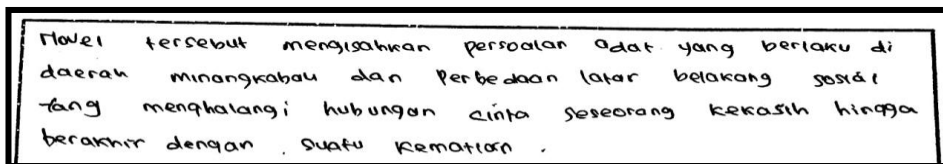 Novel tersebut mengisahkan persoalan adat yang berlaku di
daerah minangkabau dan perbedaan latar belakang sosial
yang menghalangi hubungan cinta seseorang kekasih hingga
berakhir dengan . suatu kematian .